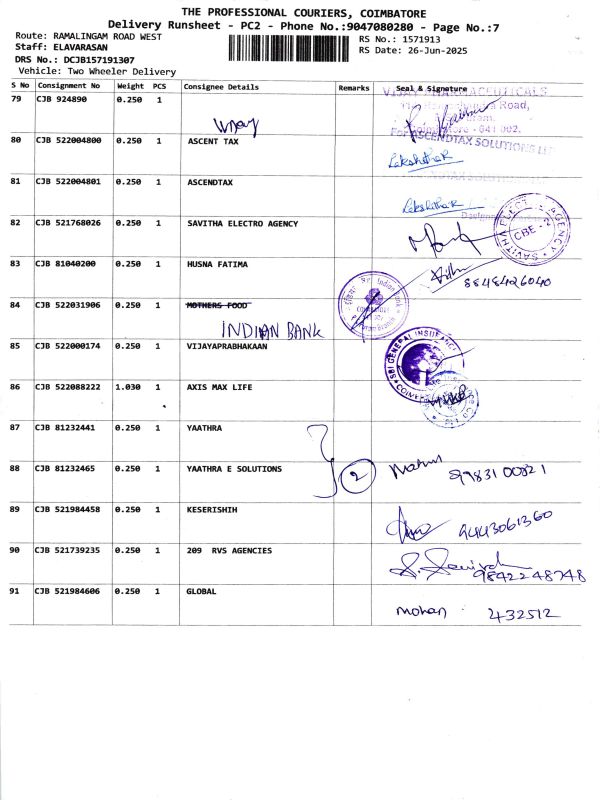 THE PROFESSIONAL COURIERS, COIMBATORE
Delivery Runsheet - PC2 - Phone No.:9047080280 - Page No.:7
Route: RAMALINGAM ROAD WEST
RS No.: 1571913
Staff: ELAVARASAN
RS Date: 26-Jun-2025
DRS No.: DCJB157191307
Vehicle: Two Wheeler Delivery
S No Consignment No Weight PCS Consignee Details Remarks Seal & Signature
79 CJB 924890 0.250 1
VIJAY PHARMACEUTICALS
Road,
641 002.
80 CJB 522004800 0.250 1 ASCENT TAX
For ASCENDTAX SOLUTIONS
81 CJB 522004801 0.250 1 ASCENDTAX
82 CJB 521768026 0.250 1 SAVITHA ELECTRO AGENCY
SAVITHA ELECTRO AGENCY
CBE - 2
83 CJB 81040200 0.250 1 HUSNA FATIMA
8848426040
84 CJB 522031906 0.250 1 MOTHERS FOOD
INDIAN BANK
Indian Bank
85 CJB 522000174 0.250 1 VIJAYAPRABHAKAAN
SBI GENERAL INSURANCE
86 CJB 522088222 1.030 1 AXIS MAX LIFE
87 CJB 81232441 0.250 1 YAATHRA
88 CJB 81232465 0.250 1 YAATHRA E SOLUTIONS
2
9983100821
89 CJB 521984458 0.250 1 KESERISHIH
9443061360
90 CJB 521739235 0.250 1 209 RVS AGENCIES
9842248748
91 CJB 521984606 0.250 1 GLOBAL
mohan 432512